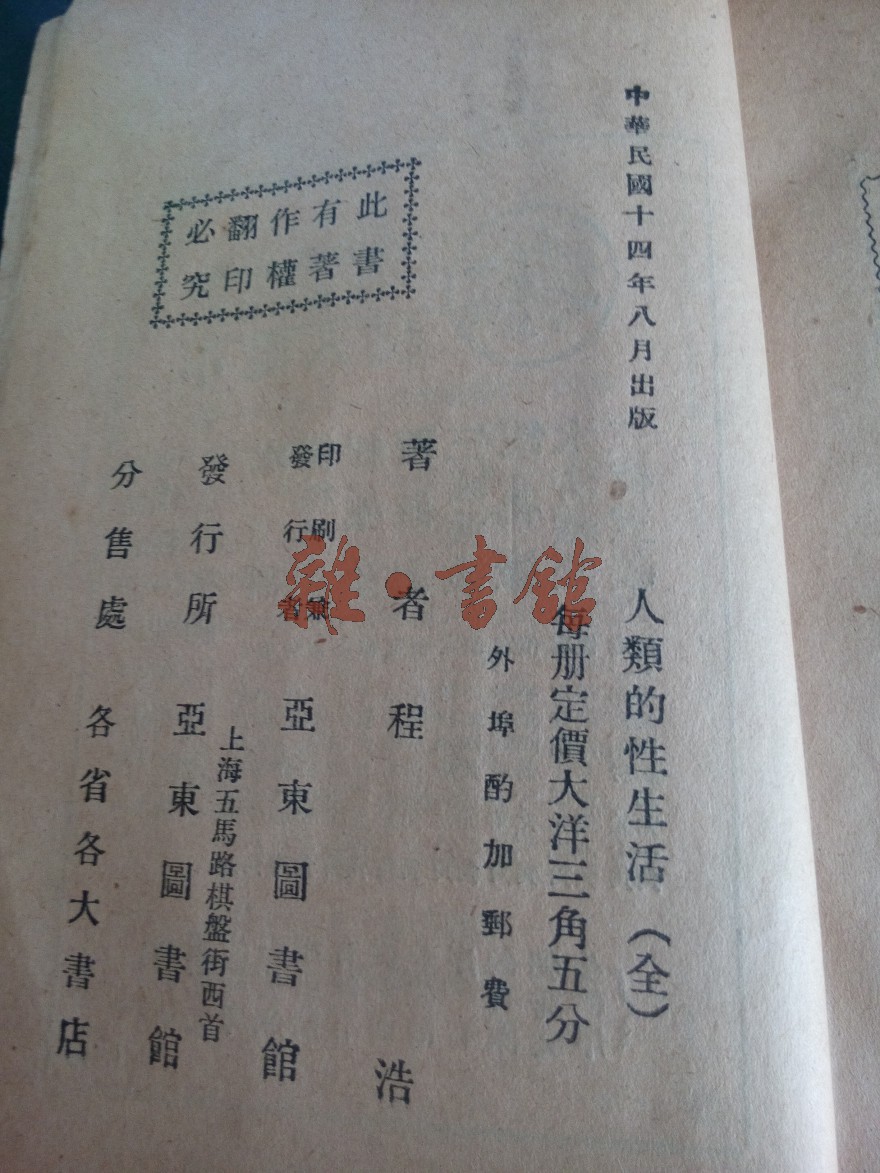 中華民國十四年八月出版
人類的性生活（全）
每册定價大洋三角五分
外埠酌加郵費
著者程浩
印刷兼
發行者
亞東圖書館
上海五馬路棋盤街西首
發行所亞東圖書館
分售處各省各大書店
此書
有著
作權
翻印
必究
雜·書館